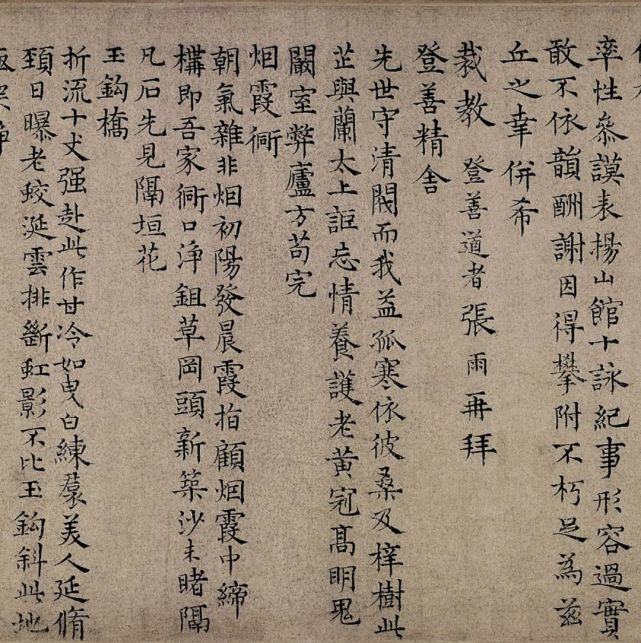 率性叅謨表揚山館十詠紀事形容過實
敢不依韻酬謝因得攀附不朽足為茲
丘之幸併希
裁教 登善道者張雨再拜
登善精舎
先世守清閥而我益孤寒依彼桑及梓樹此
芷與蘭太上詎忘情養護老黃冠髙明鬼
闞室弊廬方苟完
烟霞衕
朝氣雜非烟初陽發晨霞指顧烟霞中締
構即吾家衕口淨鉏草岡頭新築沙未睹隔
凡石先見隔垣花
玉鈎橋
折流十丈强赴此作甘冷如曳白練裠美人延脩
頚日曝老蛟涎雲排斷虹影不比玉鈎斜此地